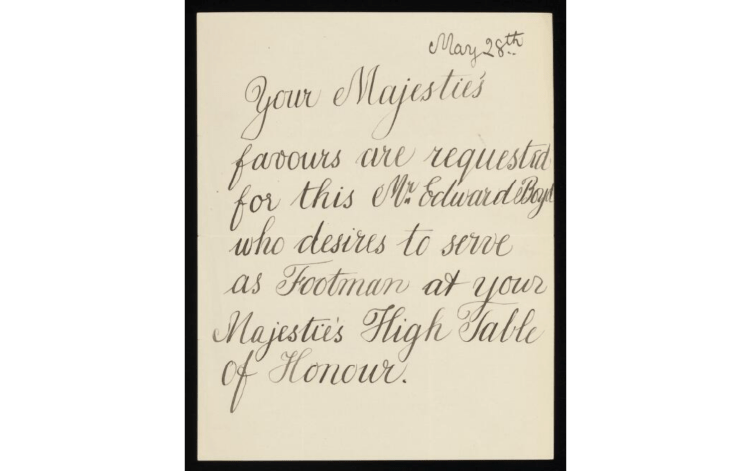 May 28th
Your Majestie's
favours are requested
for this Mr. Edward Boyd
who desires to serve
as Footman at your
Majestie's High Table
of Honour.